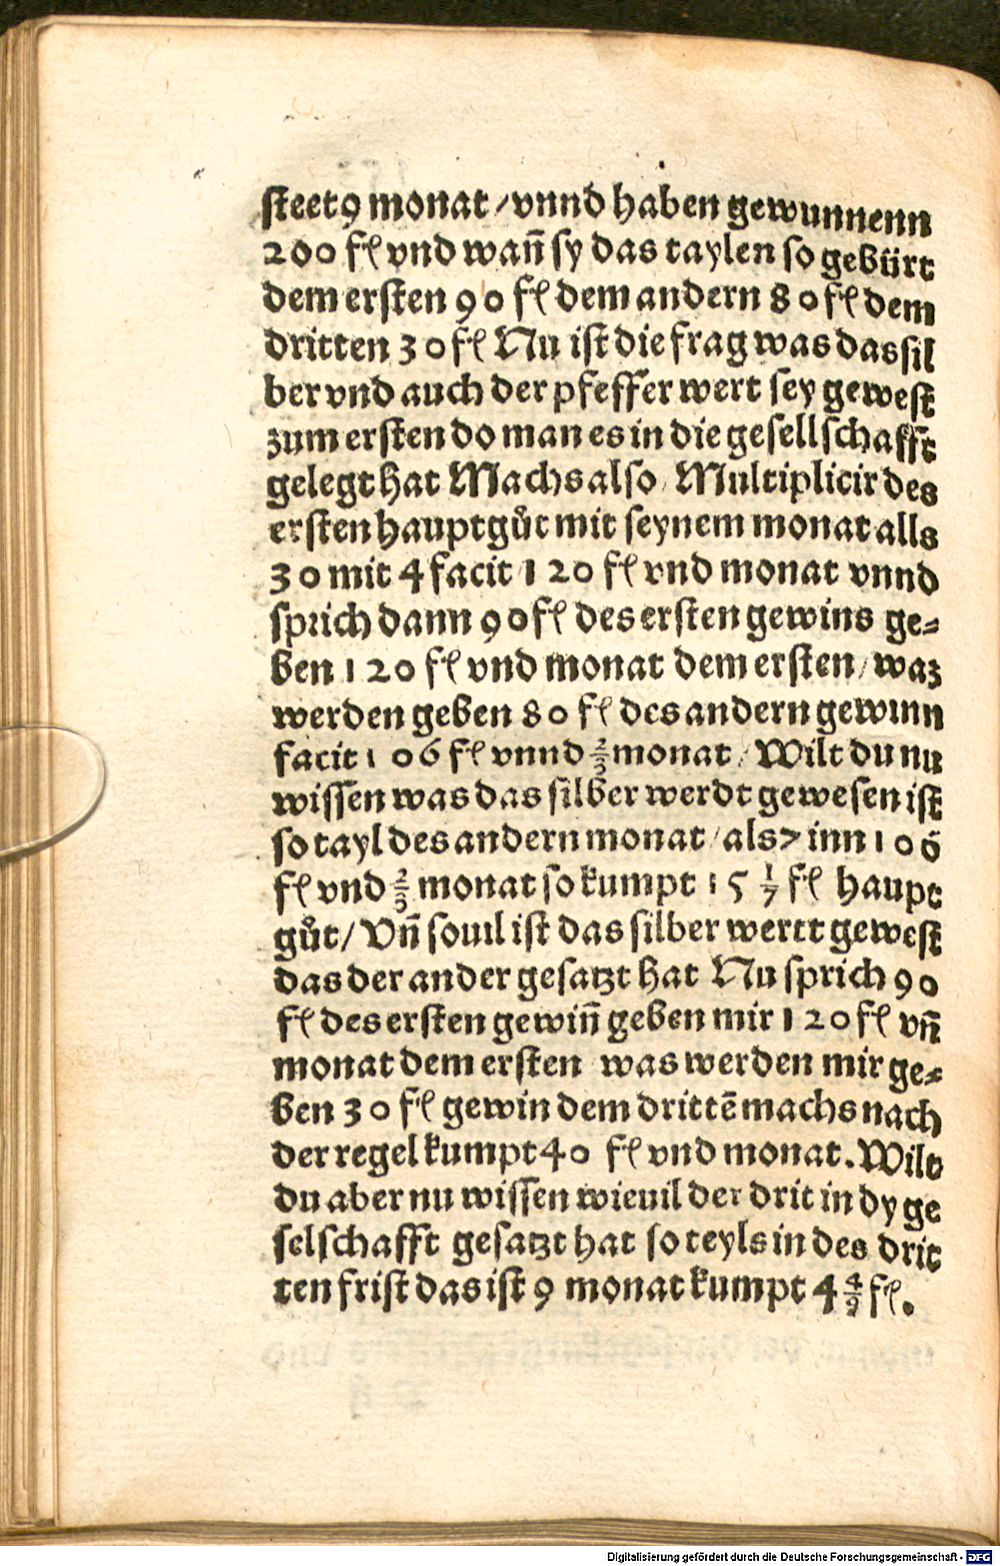 steet 9 monat / vnnd haben gewunnenn
200 fl vnd wañ sy das taylen so gebürt
dem ersten 90 fl dem andern 80 fl dem
dritten 30 fl Nu ist die frag was das sil
ber vnd auch der pfeffer wert sey gewest
zum ersten do man es in die gesellschafft
gelegt hat Machs also / Multiplicir des
ersten hauptgůt mit seynem monat alls
30 mit 4 facit 120 fl vnd monat vnnd
sprich dann 90 fl des ersten gewins ge⸗
ben 120 fl vnd monat dem ersten / waz
werden geben 80 fl des andern gewinn
facit 106 fl vnnd ⅔ monat / Wilt du nu
wissen was das silber werdt gewesen ist
so tayl des andern monat / als 7 inn 106
fl vnd ⅔ monat so kumpt 15 1/7 fl haupt
gůt / Vñ souil ist das silber wertt gewest
das der ander gesatzt hat Nu sprich 90
fl des ersten gewiñ geben mir 120 fl vñ
monat dem ersten was werden mir ge⸗
ben 30 fl gewin dem drittē machs nach
der regel kumpt 40 fl vnd monat. Wilt
du aber nu wissen wieuil der drit in dy ge
selschafft gesatzt hat so teyls in des drit
ten frist das ist 9 monat kumpt 4 4/9 fl.
Digitalisierung gefördert durch die Deutsche Forschungsgemeinschaft - DFG